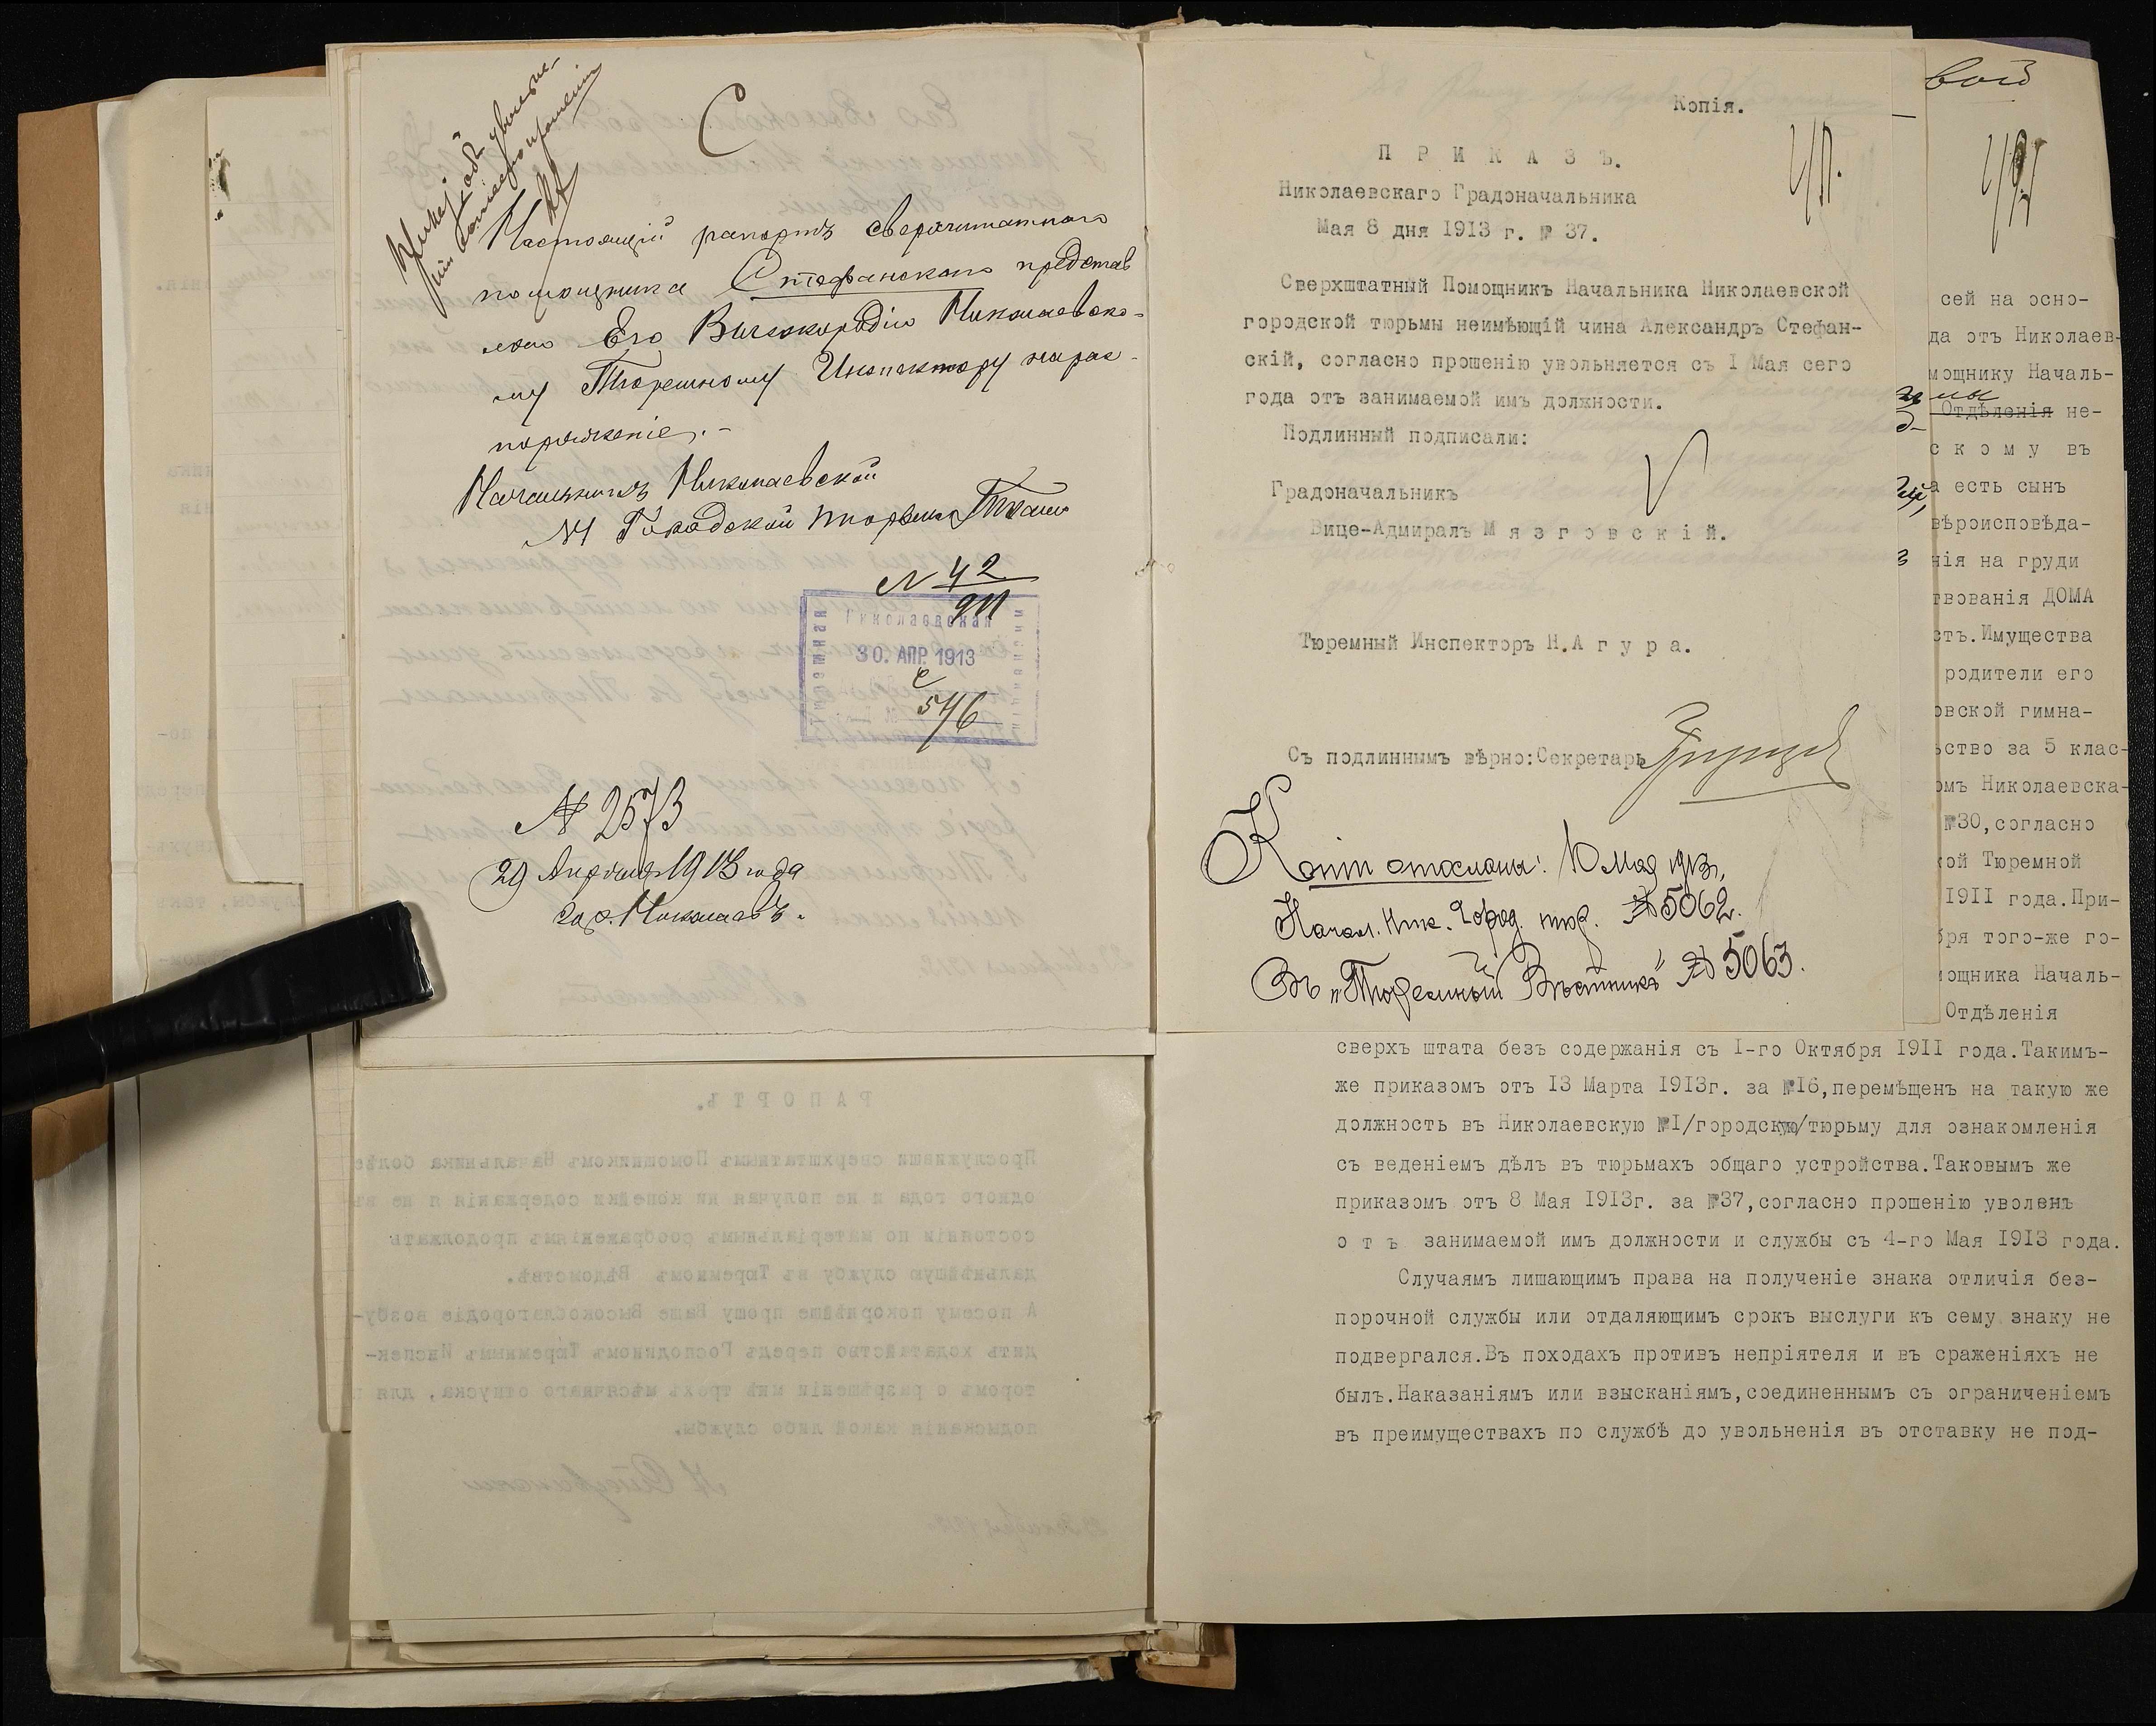 С
Настоящій рапортъ сверхштатнаго
помощника Стефанскаго представ
ляю Его Высокородію Николаевско-
му Тюремному Инспектору на рас-
поряженіе.-
Начальникъ Николаевской
№1 Городской тюрьмы
№ 42
911
Николаевская
Тюремная
Инспекція
30. АПР. 1913
546
№ 2573
29 Апрѣля 1913 года
гор. Николаевъ.
РАПОРТЪ.
Прослуживши сверхштатнымъ Помощникомъ Начальника болѣе
одного года и не получая ни копейки содержанія я не въ
состояніи по матеріальнымъ соображеніямъ продолжать
дальнѣйшую службу въ Тюремномъ Вѣдомствѣ.
А посему покорнѣйше прошу Ваше Высокоблагородіе возбу-
дить ходатайство передъ Господиномъ Тюремнымъ Инспек-
торомъ о разрѣшеніи мнѣ трехъ мѣсячнаго отпуска, для
подысканія какой либо службы.
А Стефанскій
Копія.
ПРИКАЗЪ.
Николаевскаго Градоначальника
Мая 8 дня 1913 г. № 37.
Сверхштатный Помощникъ Начальника Николаевской
городской тюрьмы неимѣющій чина Александръ Стефан-
скій, согласно прошенію увольняется съ I Мая сего
года отъ занимаемой имъ должности.
Подлинный подписали:
Градоначальникъ
Вице-Адмиралъ Мязговскій.
Тюремный Инспекторъ Н.Агура.
Съ подлиннымъ вѣрно:Секретарь
Копіи отосланы: 10 Мая 1913,
Начал. Ник. Город. тюр. № 5062.
Въ „Тюремный Вѣстникъ" № 5063.
вой
сей на осно-
да отъ Николаев-
мощнику Началь-
мы
Отдѣленія не-
скому въ
а есть сынъ
вѣроисповѣда-
нія на груди
твованія ДОМА
сть.Имущества
родители его
овской гимна-
ьство за 5 клас-
омъ Николаевска-
№30,согласно
кой Тюремной
1911 года.При-
бря того-же го-
мощника Началь-
Отдѣленія
сверхъ штата безъ содержанія съ I-го Октября 1911 года.Такимъ-
же приказомъ отъ 13 Марта 1913г. за №16,перемѣщенъ на такую же
должность въ Николаевскую №I/городскую/тюрьму для ознакомленія
съ веденіемъ дѣлъ въ тюрьмахъ общаго устройства.Таковымъ же
приказомъ отъ 8 Мая 1913г. за №37,согласно прошенію уволенъ
отъ занимаемой имъ должности и службы съ 4-го Мая 1913 года.
Случаямъ лишающимъ права на полученіе знака отличія без-
порочной службы или отдаляющимъ срокъ выслуги къ сему знаку не
подвергался.Въ походахъ противъ непріятеля и въ сраженіяхъ не
былъ.Наказаніямъ или взысканіямъ,соединеннымъ съ ограниченіемъ
въ преимуществахъ по службѣ до увольненія въ отставку не под-